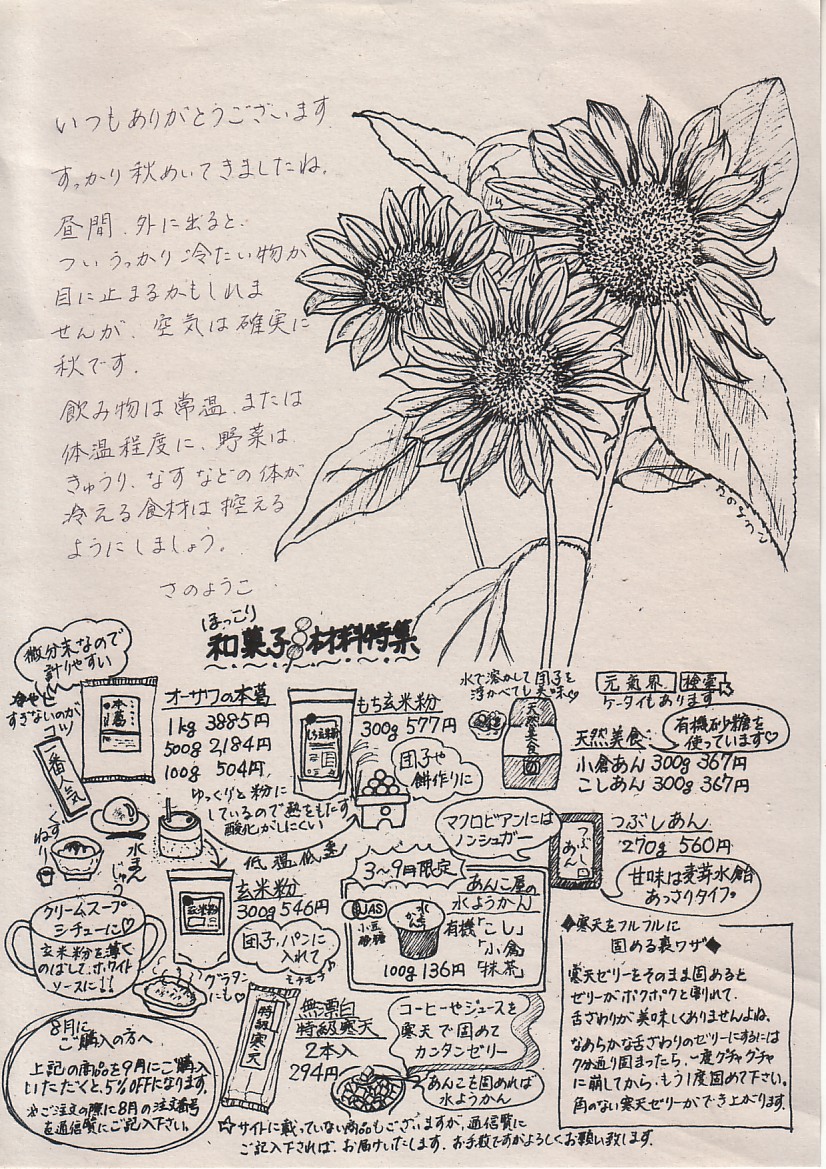 いつもありがとうございます
すっかり秋めいてきましたね。
昼間、外に出ると、
ついうっかり冷たい物が
目に止まるかもしれま
せんが、空気は確実に
秋です。
飲み物は常温、または
体温程度に、野菜は
きゅうり、なすなどの体が
冷える食材は控える
ようにしましょう。
さのようこ
ほっこり
和菓子材料特集
微粉末なので
計りやすい
冷やし
すぎないのが
コツ
一番人気
本葛
オーサワの本葛
1kg 3885円
500g 2,184円
100g 504円
もち玄米粉
もち玄米粉
300g 577円
団子や
餅作りに
ゆっくりと粉に
しているので熱をもたず
酸化がしにくい
低温低速
水で溶かして団子を
浮かべても美味♡
天然美食
元氣界 検索
ケータイもあります
天然美食
有機砂糖を
使っています♡
小倉あん 300g 367円
こしあん 300g 367円
くずねり
水まんじゅう
マクロビアンには
ノンシュガー
つぶしあん
つぶしあん
270g 560円
甘味は麦芽水飴
あっさりタイプ。
クリームスープ
シチューに♡
玄米粉を薄く
のばして、ホワイト
ソースに!!
玄米粉
玄米粉
300g 546円
団子、パンに
入れて
もちもち♪
グラタン
にも♡
3〜9月限定
あんこ屋の
水ようかん
JAS
小豆
砂糖
水ようかん
有機「こし」
「小倉」
「抹茶」
100g 136円
◆寒天をフルフルに
固める裏ワザ◆
寒天ゼリーをそのまま固めると
ゼリーがポクポクと割れて、
舌ざわりが美味しくありませんよね。
なめらかな舌ざわりのゼリーにするには
7分通り固まったら、一度グチャグチャ
に崩してから、もう1度固めて下さい。
角のない寒天ゼリーができ上がります。
8月に
ご購入の方へ
上記の商品を9月にご購入
いただくと、5%OFFになります。
※ご注文の際に8月の注文番号
を通信覧にご記入下さい。
特級寒天
無漂白
特級寒天
2本入
294円
コーヒーやジュースを
寒天で固めて
カンタンゼリー
あんこを固めれば
水ようかん
☆サイトに載っていない商品もございますが、通信覧に
ご記入下されば、お届けいたします。お手数ですがよろしくお願い致します。